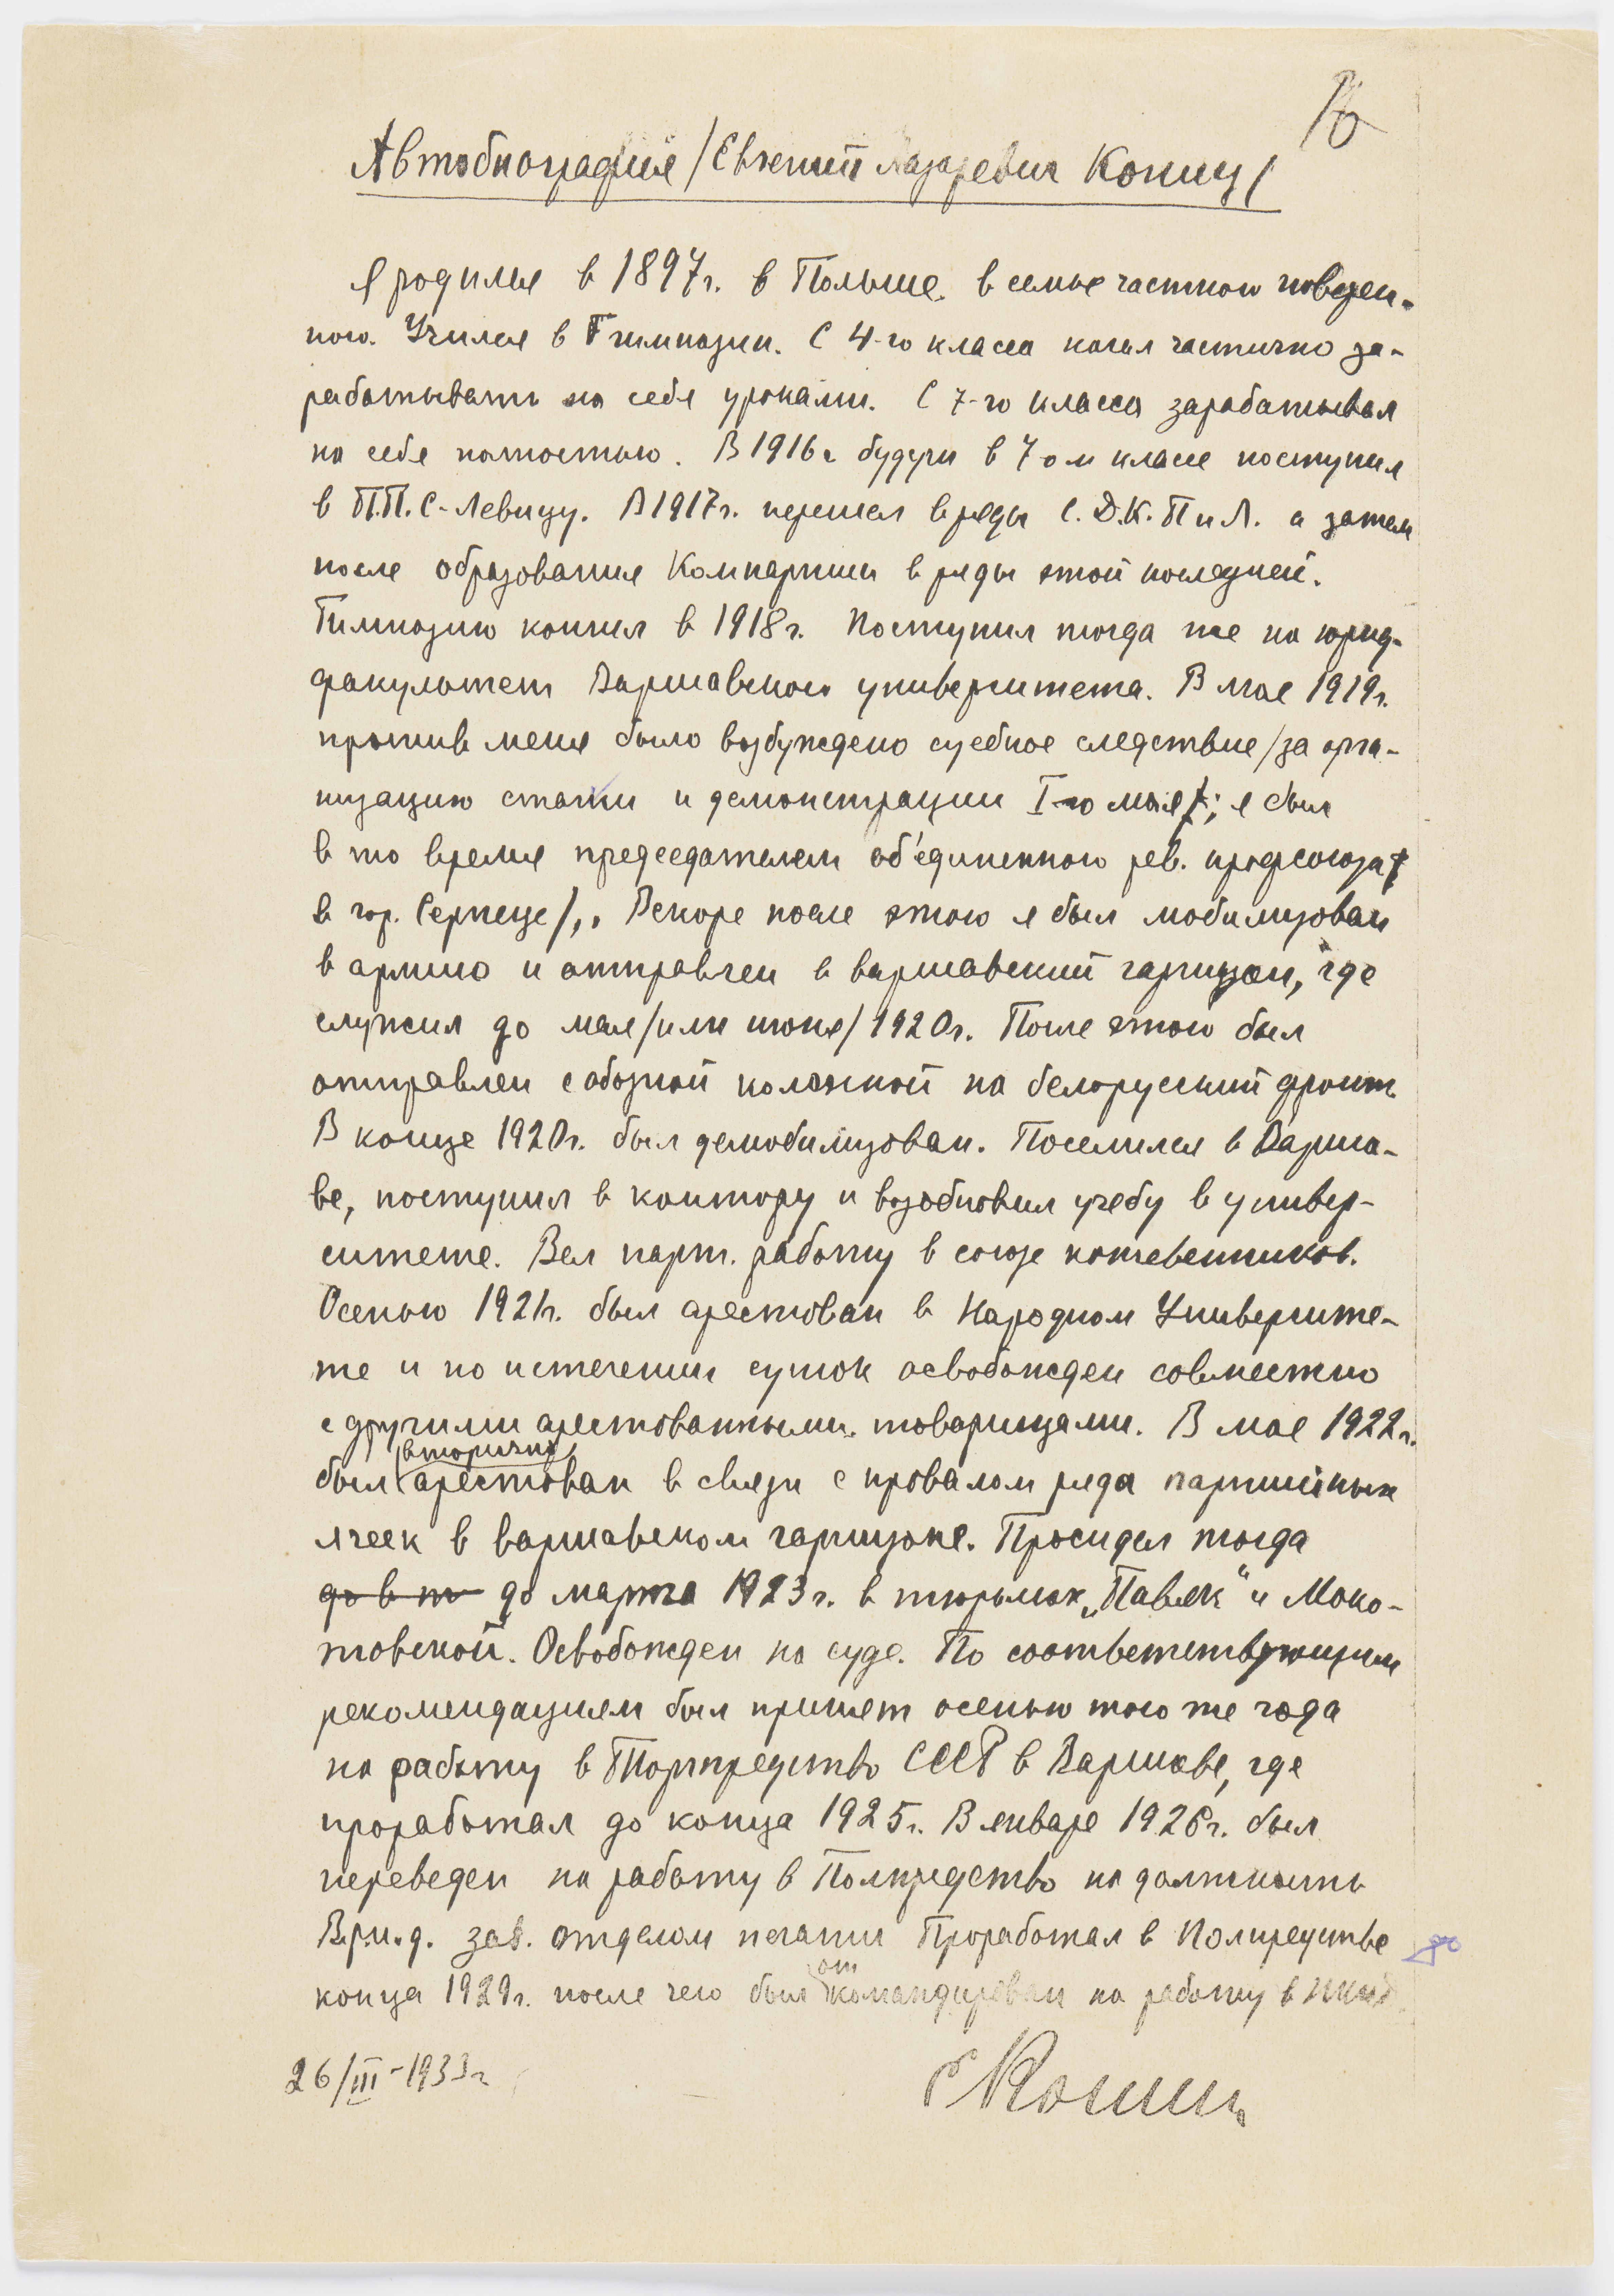 16
Автобиография /Евгений Лазаревич Кониц/
Я родился в 1897г. в Польше в семье частного поверен-
ного. Учился в Гимназии. С 4-го класса начал частично за-
рабатывать на себя уроками. С 7-го класса зарабатывал
на себя полностью. В 1916г будучи в 7-ом классе поступил
в П.П.С-Левицу. В 1917г. перешел в ряды С.Д.К.П и Л. а затем
после образования Компартии в ряды этой последней.
Гимназию кончил в 1918г. Поступил тогда же на юрид-
факультет Варшавского университета. В мае 1919г.
против меня было возбуждено судебное следствие /за орга-
низацию стачки и демонстрации I-го мая/; я был
в то время председателем об'единенного рев. профсоюза
в гор. Серпеце/,. Вскоре после этого я был мобилизован
в армию и отправлен в варшавский гарнизон, где
служил до мая /или июня/ 1920г. После этого был
отправлен с обозной колонной на белоруский фронт.
В конце 1920г. был демобилизован. Поселился в Варша-
ве, поступил в контору и возобновил учебу в универ-
ситете. Вел парт. работу в союзе кожевенников.
Осенью 1921г. был арестован в Народном Университе-
те и по истечении суток освобожден совместно
с другими арестованными товарищами. В мае 1922г.
вторично
был арестован в связи с провалом ряда партийных
ячеек в варшавском гарнизоне. Просидел тогда
до в т до марта 1923г. в тюрьмах „Павяк“ и Моко-
товской. Освобожден на суде. По соответствующим
рекомендациям был принят осенью того же года
на работу в Торгпредство СССР в Варшаве, где
проработал до конца 1925г. В январе 1926г. был
переведен на работу в Полпредство на должность
Вр.и.д. зав. отделом печати Проработал в Полпредстве до
от
конца 1929г. после чего был командирован на работу в НКИД.
26/III-1933г
Е Кониц